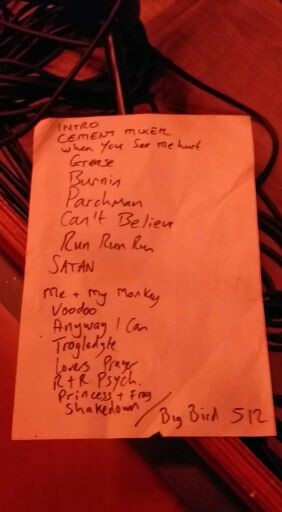 INTRO
CEMENT MIXER
When You See me hurt
Grease
Burnin
Parchman
Can't Believe
Run Run Run
SATAN
Me + My Monkey
Voodoo
Anyway I Can
Trogladyte
Lovers Prayer
R+R Psych.
Princess + Frog
Shakedown / Big Bird 512